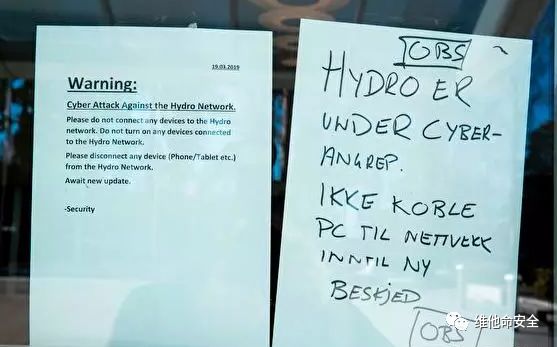 19.03.2019
Warning:
Cyber Attack Against the Hydro Network.
Please do not connect any devices to the Hydro
network. Do not turn on any devices connected
to the Hydro Network.
Please disconnect any device (Phone/Tablet etc.)
from the Hydro Network.
Await new update.
-Security
OBS
HYDRO ER
UNDER CYBER-
ANGREP.
IKKE KOBLE
PC TIL NETTVEKK
INNTIL NY
BESKJED
OBS
维他命安全